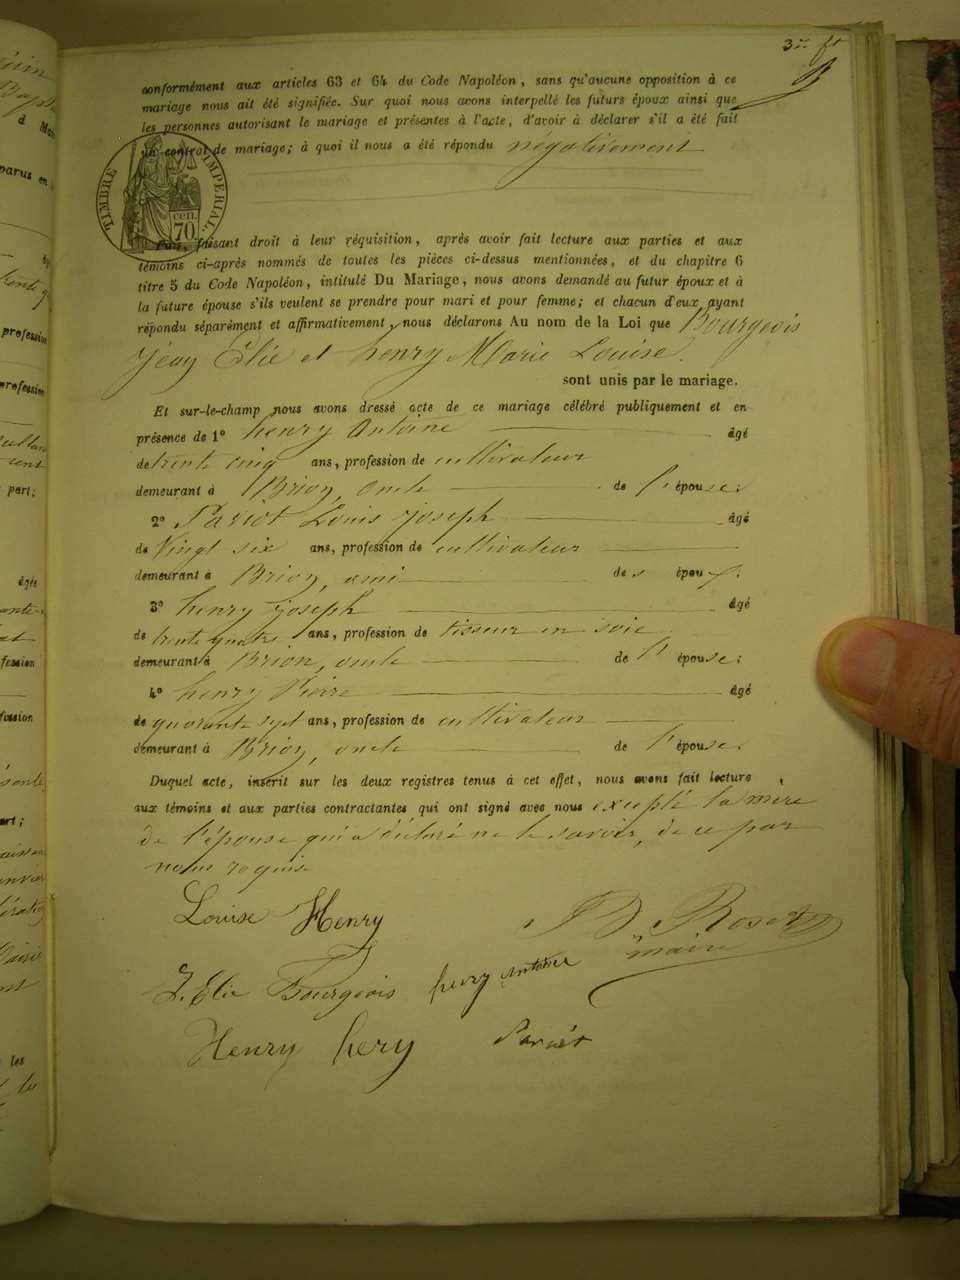 3me ft
conformément aux articles 63 et 64 du Code Napoléon, sans qu'aucune opposition à ce
mariage nous ait été signifiée. Sur quoi nous avons interpellé les futurs époux ainsi que
les personnes autorisant le mariage et présentes à l'acte, d'avoir à déclarer s'il a été fait
un contrat de mariage; à quoi il nous a été répondu négativement
TIMBRE IMPÉRIAL
cen.
70
faisant droit à leur réquisition, après avoir fait lecture aux parties et aux
témoins ci-après nommés de toutes les pièces ci-dessus mentionnées, et du chapitre 6
titre 5 du Code Napoléon, intitulé Du Mariage, nous avons demandé au futur époux et à
la future épouse s'ils veulent se prendre pour mari et pour femme; et chacun d'eux ayant
répondu séparément et affirmativement, nous déclarons Au nom de la Loi que Bourgeois
Jean Élie et henry Marie Louise.
sont unis par le mariage.
Et sur-le-champ nous avons dressé acte de ce mariage célébré publiquement et en
présence de 1º henry Antoine âgé
de trente cinq ans, profession de cultivateur
demeurant à Brion, oncle de l'épouse.
2º Pariot Louis joseph âgé
de Vingt six ans, profession de cultivateur
demeurant à Brion, ami des époux.
3º henry joseph âgé
de trente quatre ans, profession de tisseur en soie
demeurant à Brion, oncle de l'épouse;
4º henry Pierre âgé
de quarante sept ans, profession de cultivateur
demeurant à Brion, oncle de l'épouse.
Duquel acte, inscrit sur les deux registres tenus à cet effet, nous avons fait lecture
aux témoins et aux parties contractantes qui ont signé avec nous excepté la mère
de l'épouse qui a déclaré ne le savoir, de ce par
nous requise
Louise Henry
maire
J. Elie Bourgeois henry Antoine
Henry hery Pariot